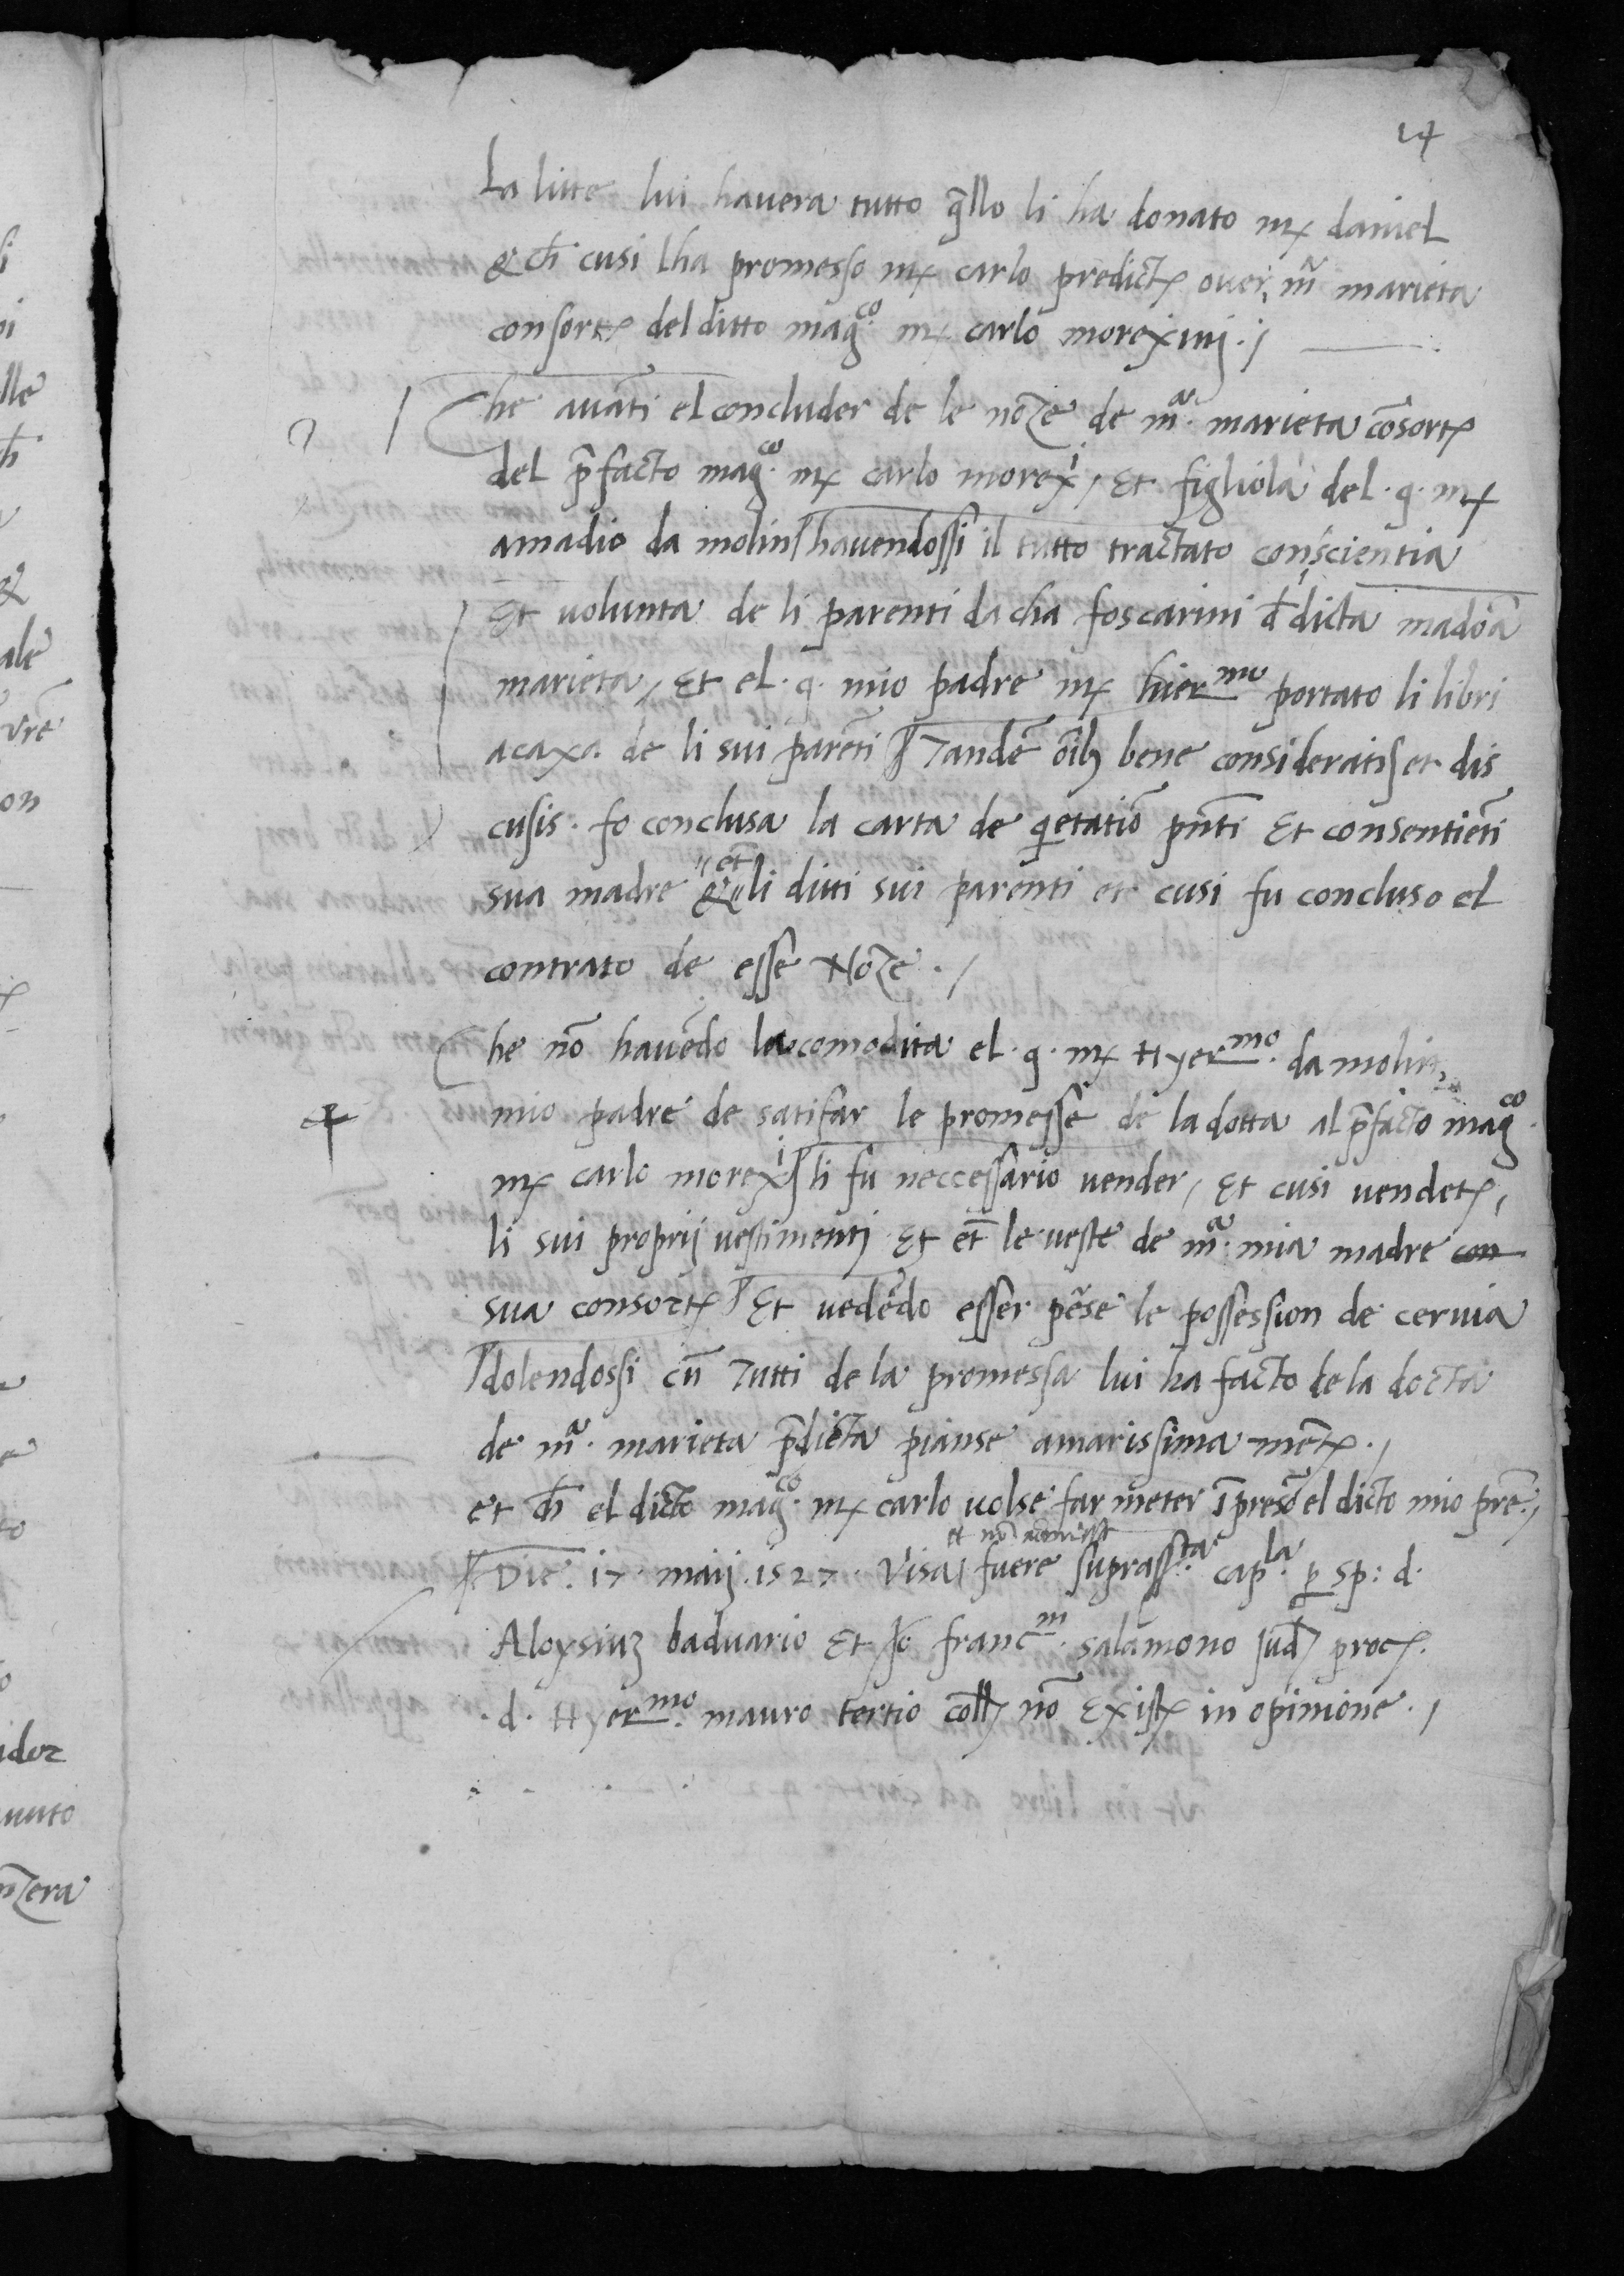 14
La litte lui havera tutto q̃llo li ha donato mẜ daniel
& ch̃ cusi lha promesso mẜ carlo predictẜ over m̃ marieta
consortẜ del ditto mag.co mẜ carlo morexinj ./
Che avãti el concluder de le noze de m.ã marieta cõsortẜ
del p̃facto mag.co mẜ carlo morexi / Et figliola del .q. mẜ
amadio da molin havendossi il tutto tractato conscientia
Et volunta de li parenti da cha foscarini d̃ dicta madõa
marieta / Et el .q. mio padre mẜ hier.mo portato li libri
a caxa de li sui parẽti Tandẽ oĩbȝ bene consideratis et dis
cusis . fo conclusa la carta de q̃etatiõ pñti Et consentiẽti
sua madre & et̃ li ditti sui parenti et cusi fu concluso el
contrato de esse Noze ./
Che nõ havẽdo la comodita el .q. mẜ Hyer.mo da molin
mio padre de satisfar le promesse de la dotta al p̃facto mag.co
mẜ carlo morexi li fu neccessario vender / Et cusi vendetẜ,
li sui proprij vestimentj Et et̃ le veste de m.ã mia madre con
sua consortẜ Et vedẽdo esser pẽse le possession de cervia
dolendossi cũ Tutti de la promessa lui ha facto de la docta
de m.ã marieta p̃dicta pianse amarissima mẽtẜ ./
et ch̃ el dicto mag.co mẜ carlo volse far meter ĩ presõ el dicto mio prẽ ./
et nõ
Die . 17 maij . 1527 . Visa fuere suprass.ta cap.la p sp: d.
Aloysiuȝ baduario Et Jo franc.m salamono Jud proc.
.d. Hyer.mo mauro tertio coll nõ Existẜ in opinione ./